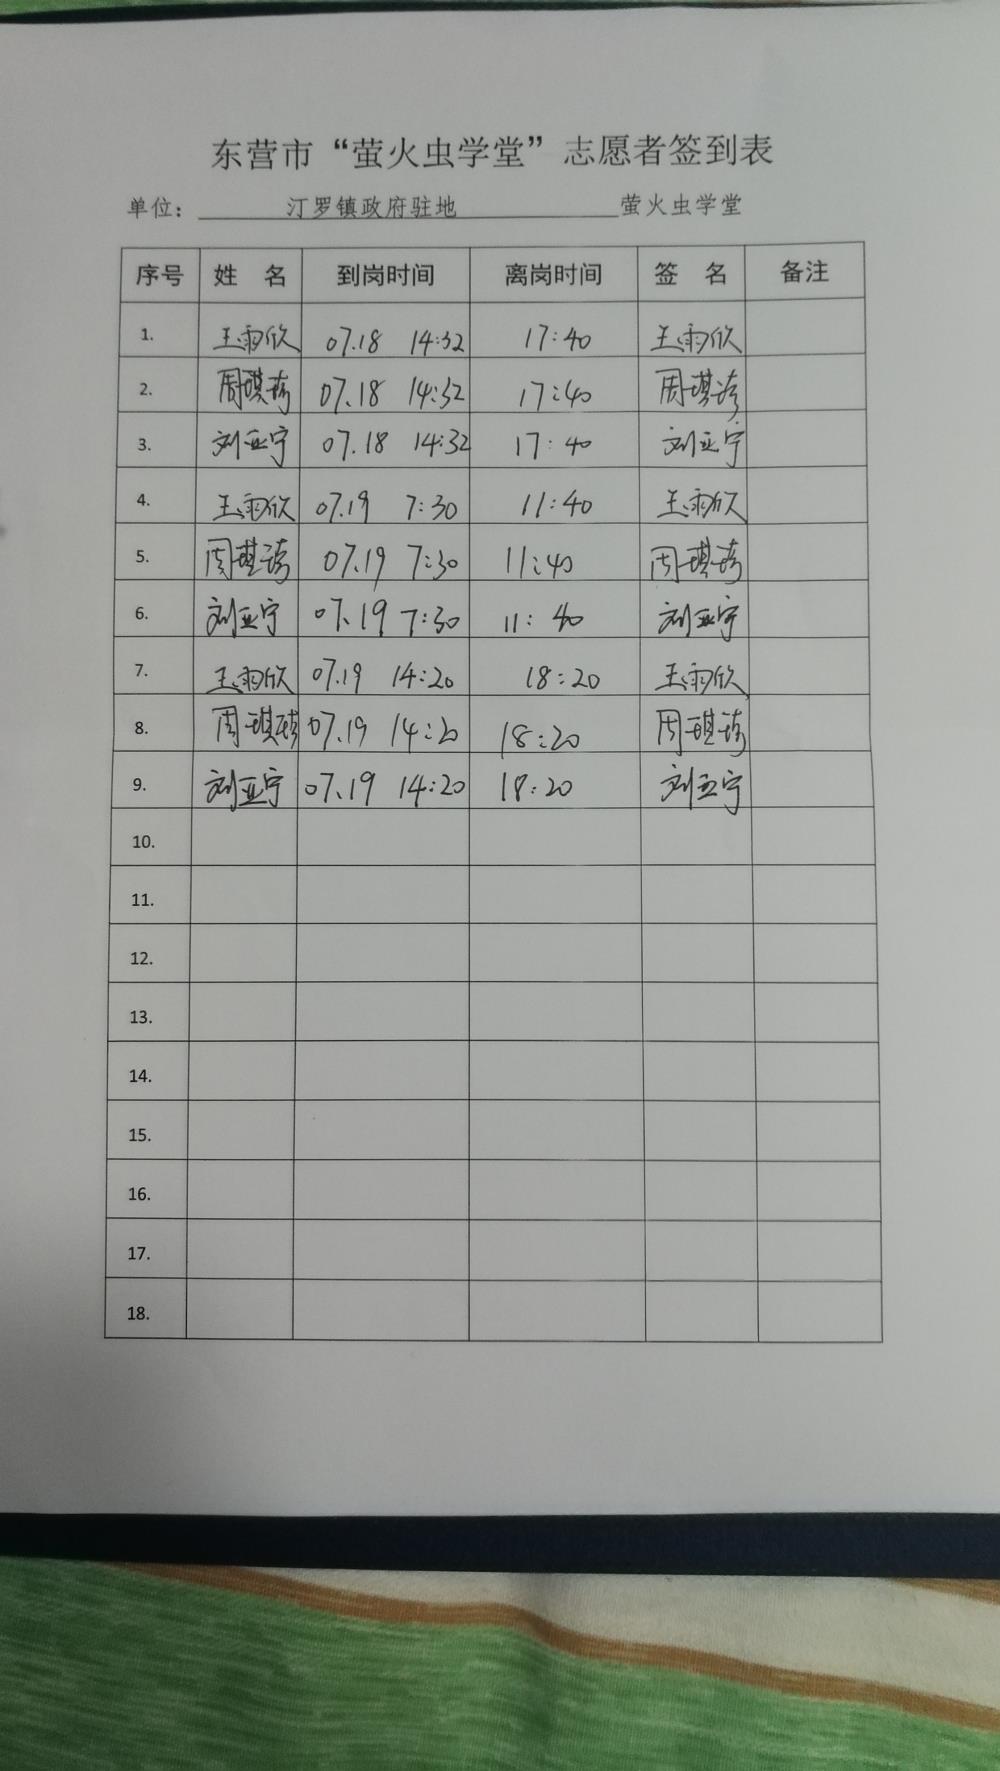 东营市“萤火虫学堂”志愿者签到表
单位： 汀罗镇政府驻地 萤火虫学堂
序号 姓 名 到岗时间 离岗时间 签 名 备注
1. 王雨欣 07.18 14:32 17:40 王雨欣
2. 周琪琦 07.18 14:32 17:40 周琪琦
3. 刘亚宁 07.18 14:32 17:40 刘亚宁
4. 王雨欣 07.19 7:30 11:40 王雨欣
5. 周琪琦 07.19 7:30 11:40 周琪琦
6. 刘亚宁 07.19 7:30 11:40 刘亚宁
7. 王雨欣 07.19 14:20 18:20 王雨欣
8. 周琪琦 07.19 14:20 18:20 周琪琦
9. 刘亚宁 07.19 14:20 18:20 刘亚宁
10.
11.
12.
13.
14.
15.
16.
17.
18.